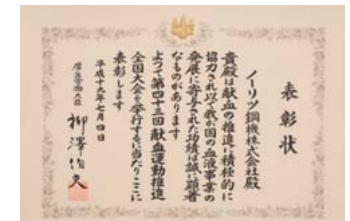 表彰状
ノーリツ鋼機株式会社殿
貴殿は献血の推進に積極的に
協力され以て我が国の血液事業の
発展に寄与された功績は誠に顕著
なものがあります
よって第四十三回献血運動推進
全国大会を挙行するに当たりここに
表彰します
平成十九年七月四日
厚生労働大臣
柳澤伯夫